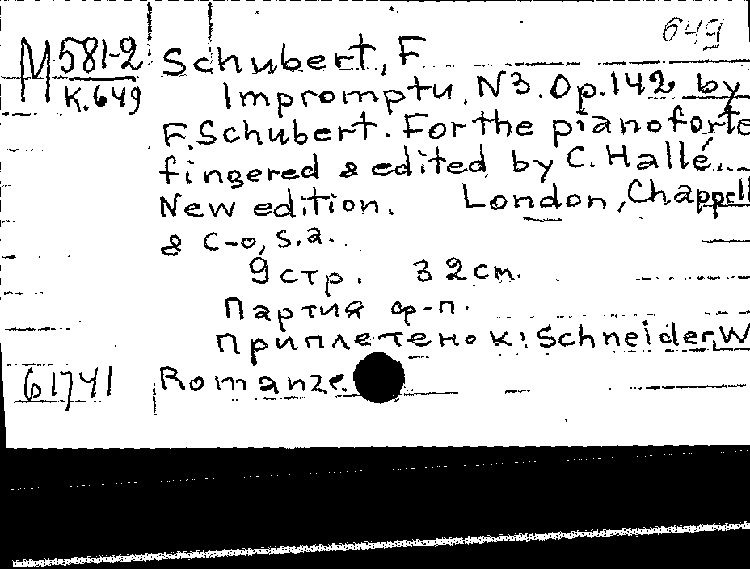 649
М581-2 Schubert, F
К.649 Impromptu, N3. Op.142 by
F. Schubert. For the pianoforte
fingered & edited by C. Hallé...
New edition. London, Chappell
& C-o, s.a..
9 стр. 32 cm.
Партия ф-п.
Приплетено к: Schneider, W
61741 Romanze